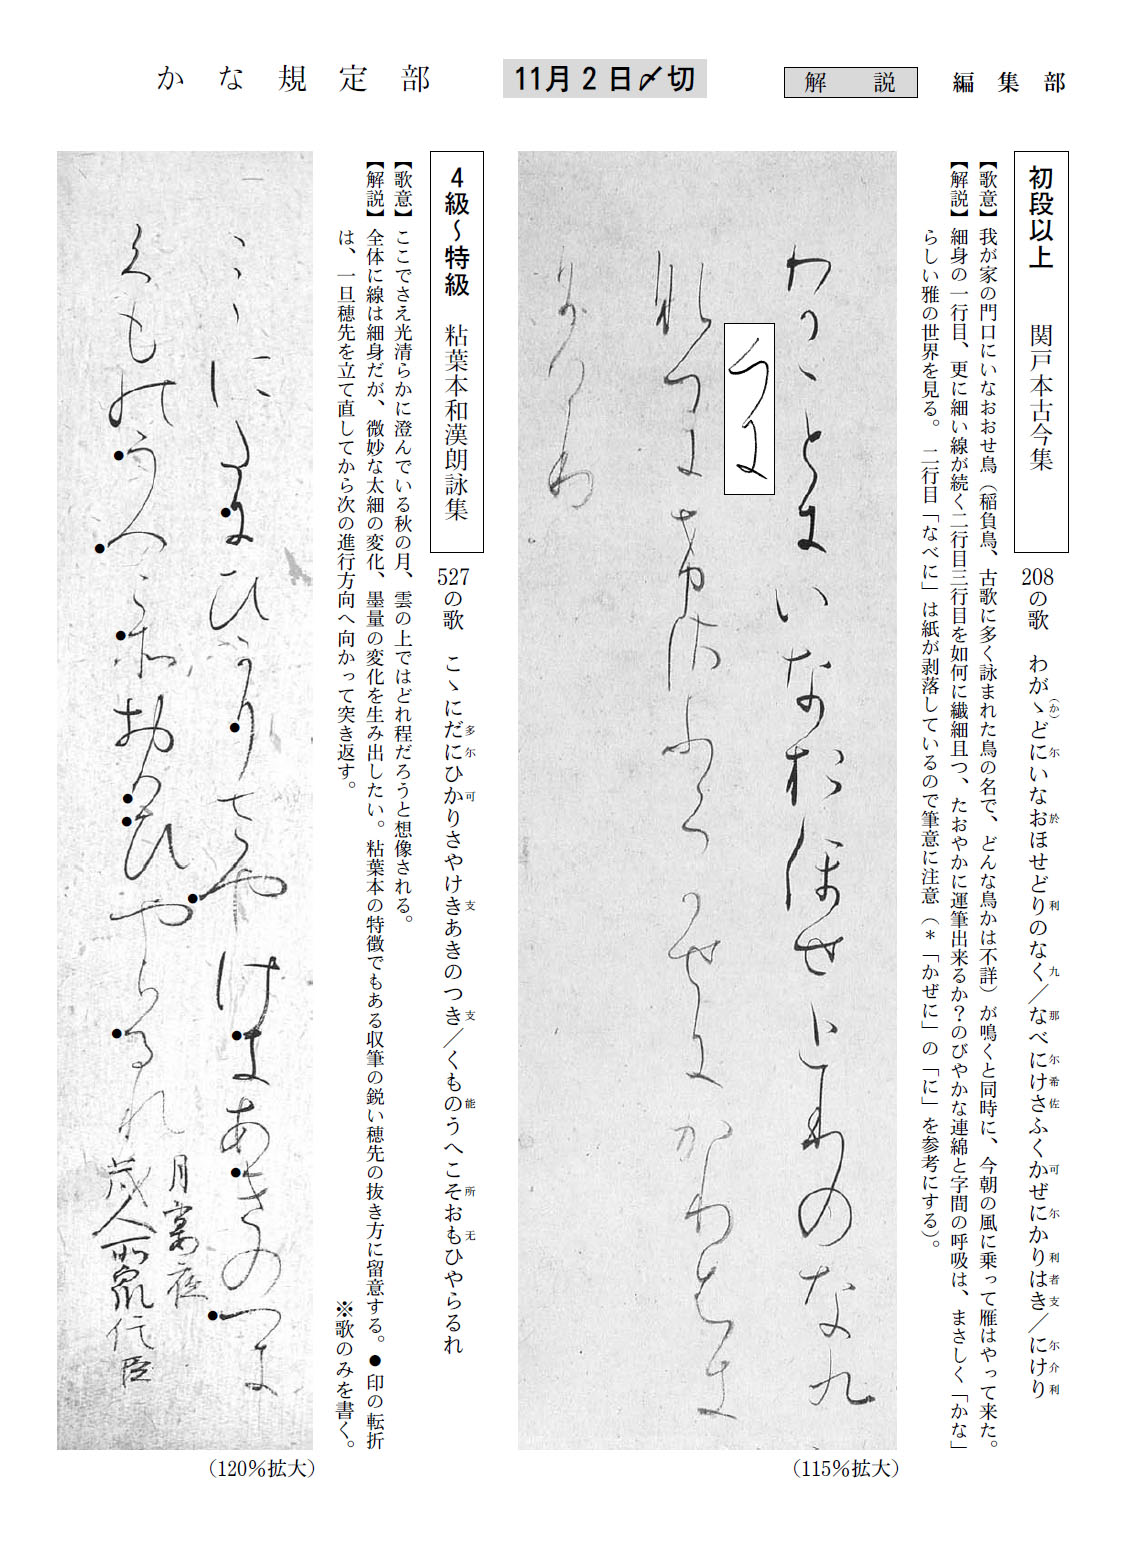 かな規定部
11月2日〆切
解説
編集部
初段以上　関戸本古今集
208の歌　わがゝどにいなおほせどりのなく／なべにけさふくかぜにかりはき／にけり
（か）尓於利九那尓希佐可尓利者支尓介利
【歌意】我が家の門口にいなおおせ鳥（稲負鳥、古歌に多く詠まれた鳥の名で、どんな鳥かは不詳）が鳴くと同時に、今朝の風に乗って雁はやって来た。
【解説】細身の一行目、更に細い線が続く二行目三行目を如何に繊細且つ、たおやかに運筆出来るか？のびやかな連綿と字間の呼吸は、まさしく「かな」
らしい雅の世界を見る。　二行目「なべに」は紙が剥落しているので筆意に注意（＊「かぜに」の「に」を参考にする）。
わかゝとに いなおほせとりのな九
（115％拡大）
4級〜特級　粘葉本和漢朗詠集
527の歌　こゝにだにひかりさやけきあきのつき／くものうへこそおもひやらるれ
多尓可支支能所无
【歌意】ここでさえ光清らかに澄んでいる秋の月、雲の上ではどれ程だろうと想像される。
【解説】全体に線は細身だが、微妙な太細の変化、墨量の変化を生み出したい。粘葉本の特徴でもある収筆の鋭い穂先の抜き方に留意する。●印の転折
は、一旦穂先を立て直してから次の進行方向へ向かって突き返す。
※歌のみを書く。
（120％拡大）